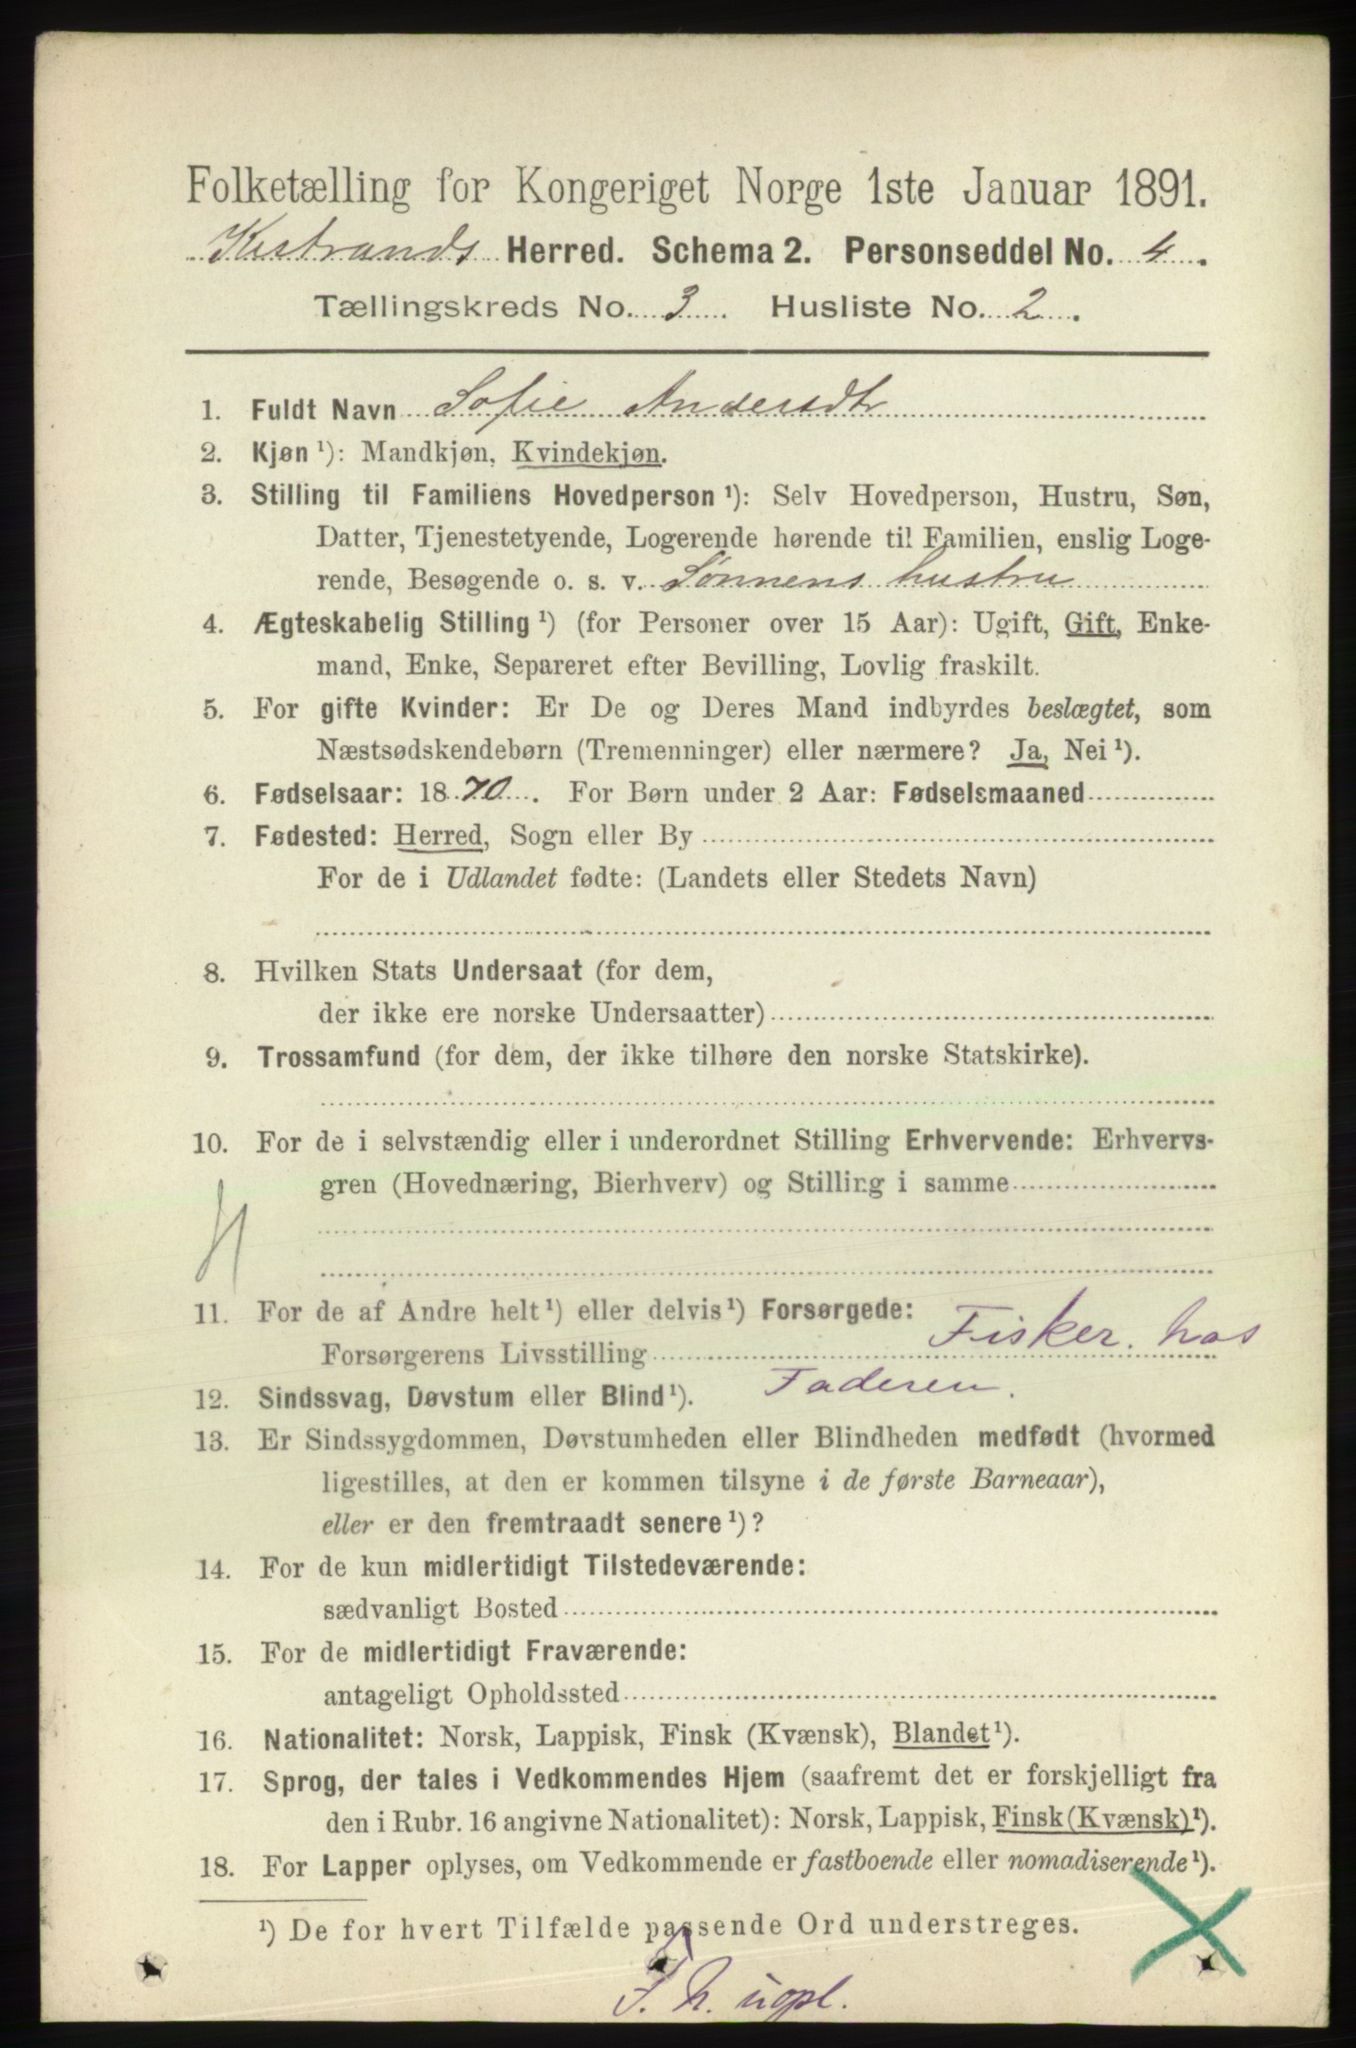 Folketælling for Kongeriget Norge 1ste Januar 1891.
Kistrands Herred. Schema 2. Personseddel No. 4.
Tællingskreds No. 3 Husliste No. 2.
1. Fuldt Navn Sofie Andersdtr
2. Kjøn ¹): Mandkjøn, Kvindekjøn.
3. Stilling til Familiens Hovedperson ¹): Selv Hovedperson, Hustru, Søn,
Datter, Tjenestetyende, Logerende hørende til Familien, enslig Loge-
rende, Besøgende o. s. v. Sønnens hustru
4. Ægteskabelig Stilling ¹) (for Personer over 15 Aar): Ugift, Gift, Enke-
mand, Enke, Separeret efter Bevilling, Lovlig fraskilt.
5. For gifte Kvinder: Er De og Deres Mand indbyrdes beslægtet, som
Næstsødskendebørn (Tremenninger) eller nærmere? Ja, Nei ¹).
6. Fødselsaar: 1870. For Børn under 2 Aar: Fødselsmaaned
7. Fødested: Herred, Sogn eller By
For de i Udlandet fødte: (Landets eller Stedets Navn)
8. Hvilken Stats Undersaat (for dem,
der ikke ere norske Undersaatter)
9. Trossamfund (for dem, der ikke tilhøre den norske Statskirke).
10. For de i selvstændig eller i underordnet Stilling Erhvervende: Erhvervs-
gren (Hovednæring, Bierhverv) og Stilling i samme
11. For de af Andre helt ¹) eller delvis ¹) Forsørgede:
Forsørgerens Livsstilling Fisker. hos
Faderen.
12. Sindssvag, Døvstum eller Blind ¹).
13. Er Sindssygdommen, Døvstumheden eller Blindheden medfødt (hvormed
ligestilles, at den er kommen tilsyne i de første Barneaar),
eller er den fremtraadt senere ¹)?
14. For de kun midlertidigt Tilstedeværende:
sædvanligt Bosted
15. For de midlertidigt Fraværende:
antageligt Opholdssted
16. Nationalitet: Norsk, Lappisk, Finsk (Kvænsk), Blandet ¹).
17. Sprog, der tales i Vedkommendes Hjem (saafremt det er forskjelligt fra
den i Rubr. 16 angivne Nationalitet): Norsk, Lappisk, Finsk (Kvænsk) ¹).
18. For Lapper oplyses, om Vedkommende er fastboende eller nomadiserende ¹).
¹) De for hvert Tilfælde passende Ord understreges.